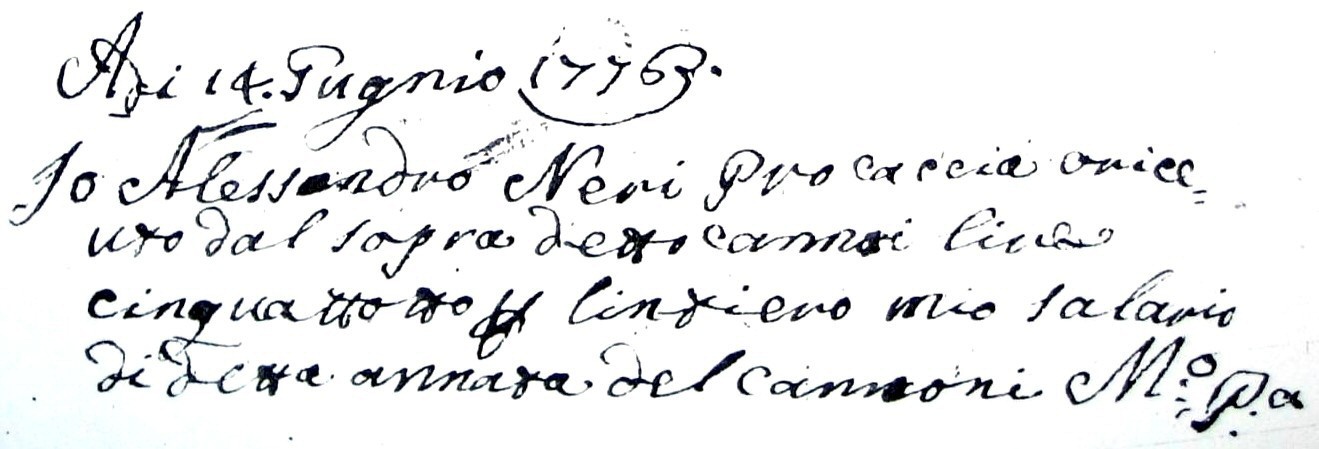 Adi 14. Gugnio 1776.
Io Alessandro Neri Procaccia o rice=
uto dal sopra detto cannoni lire
cinquattotto lintiero mio salario
di detta annata del cannoni M.º P.a